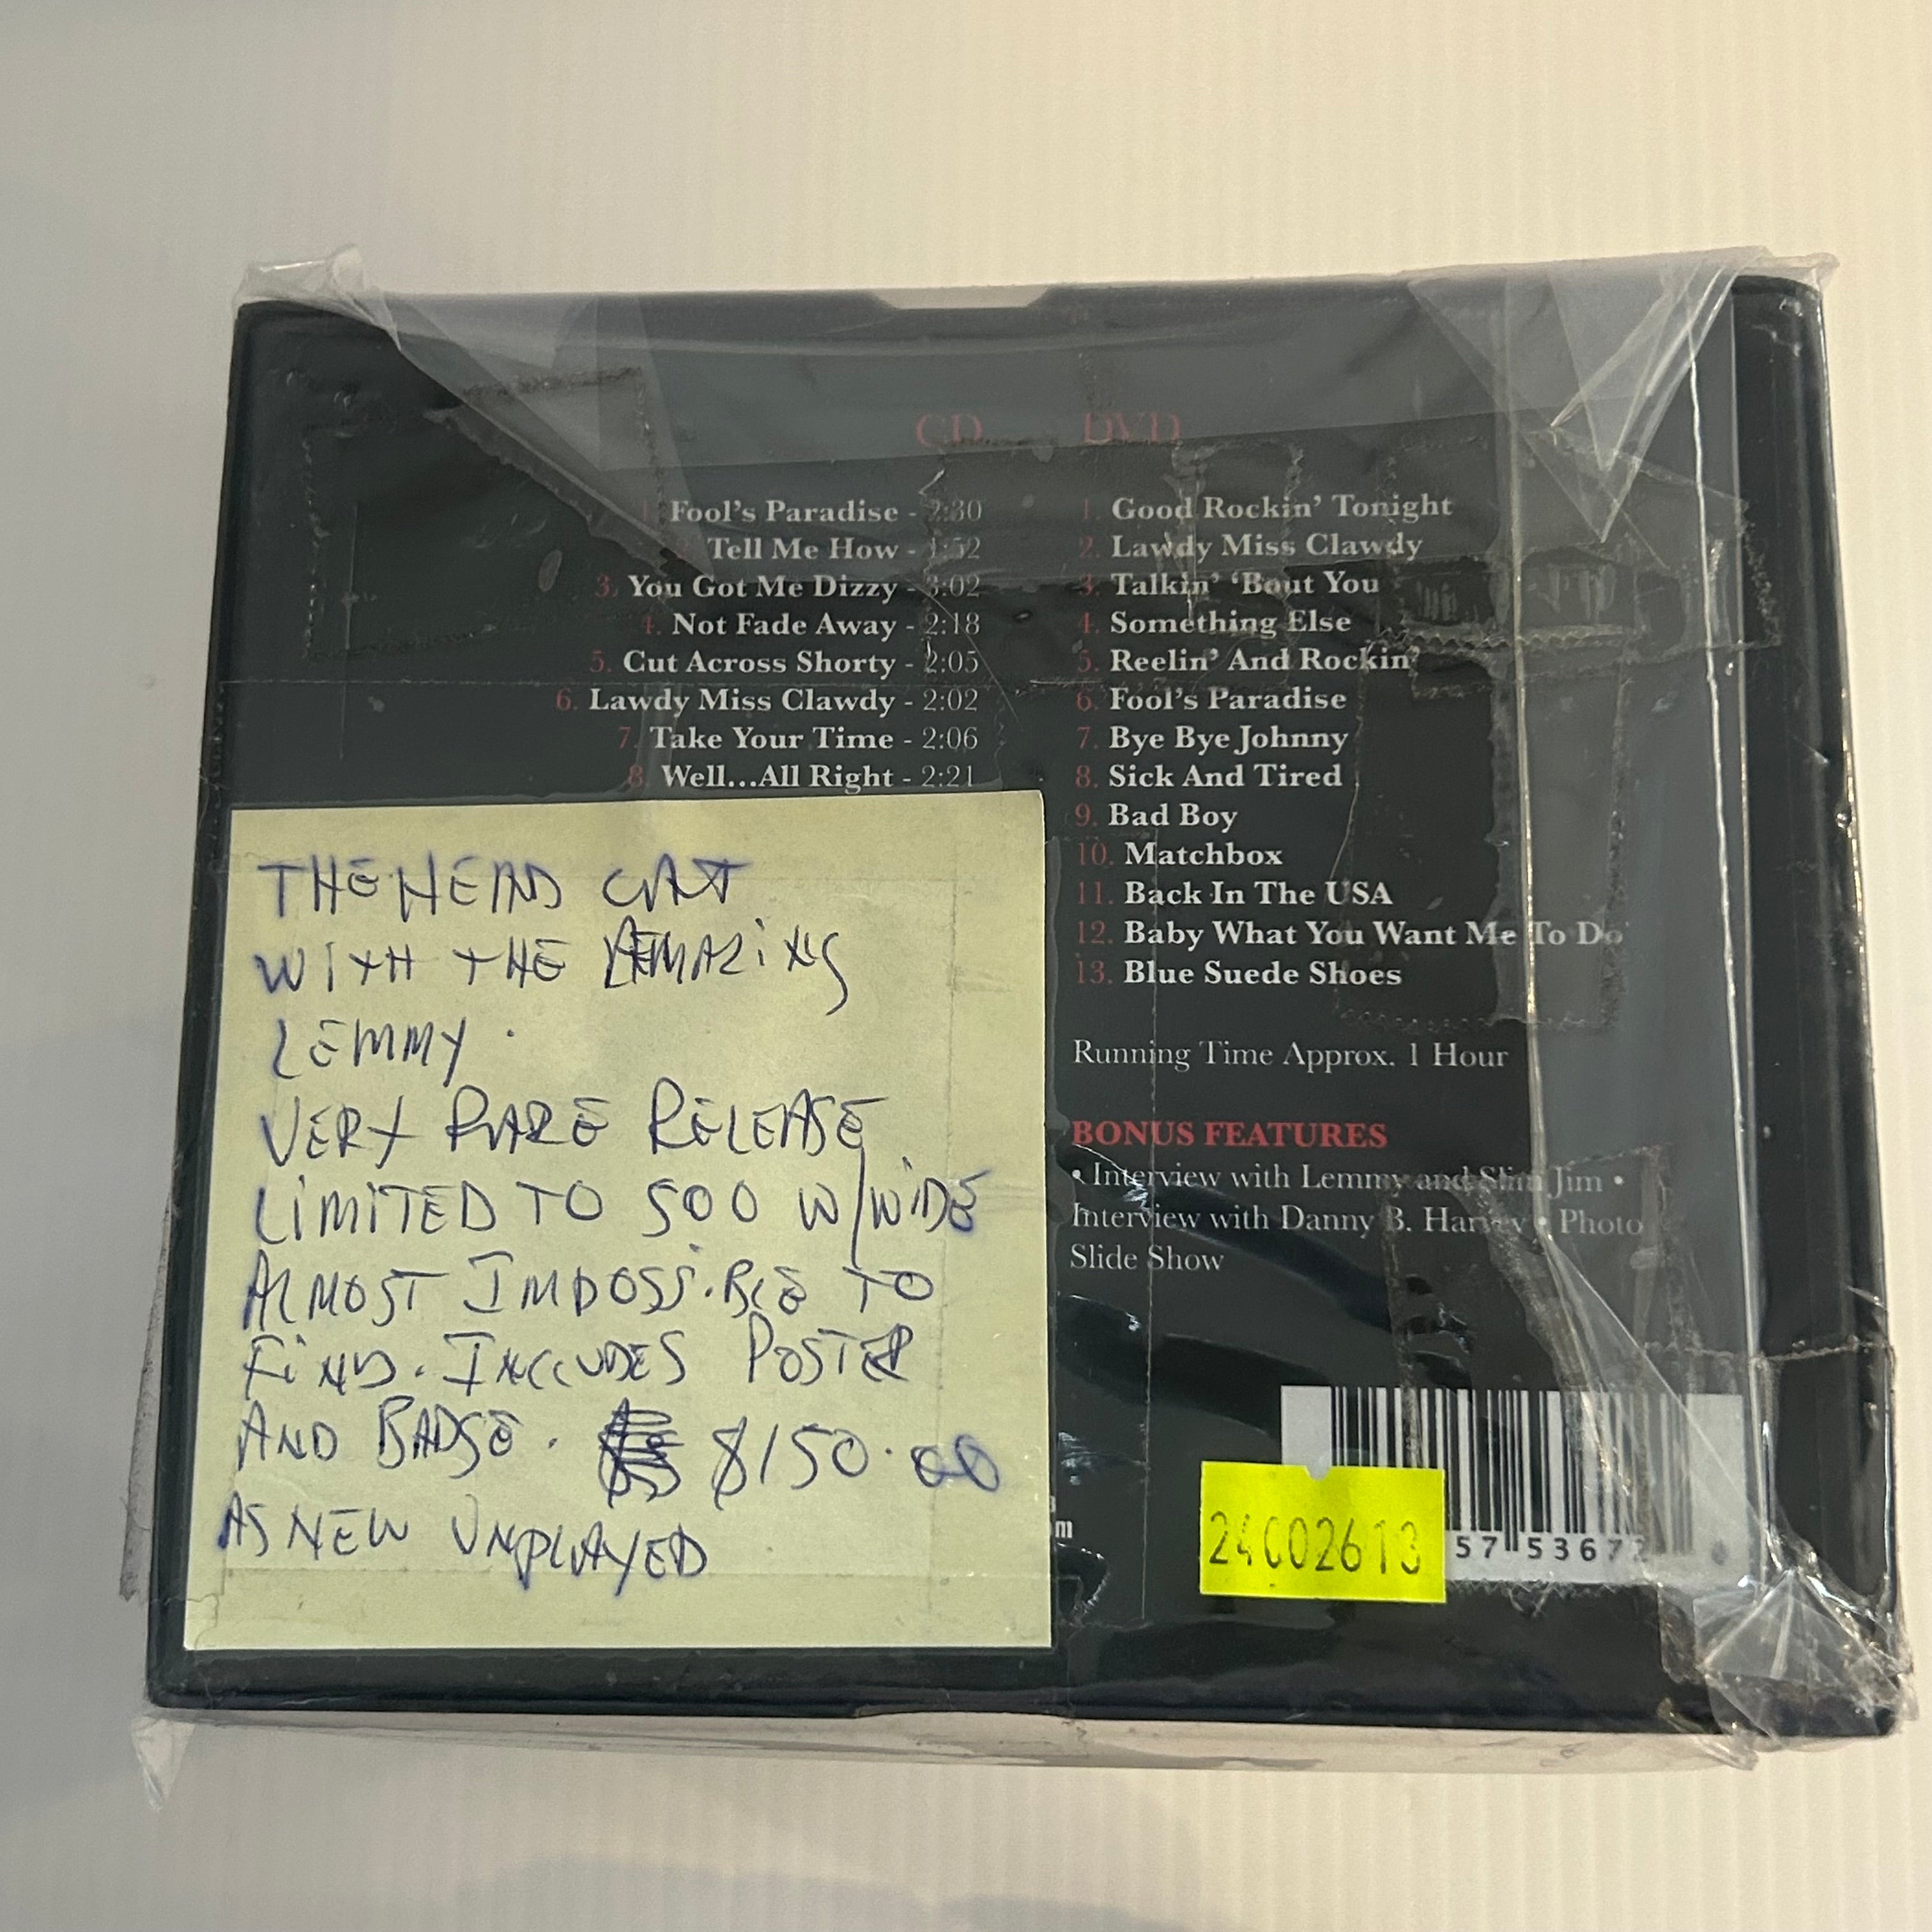 CD DVD
1. Fool's Paradise - 2:30
2. Tell Me How - 1:52
3. You Got Me Dizzy - 3:02
4. Not Fade Away - 2:18
5. Cut Across Shorty - 2:05
6. Lawdy Miss Clawdy - 2:02
7. Take Your Time - 2:06
8. Well...All Right - 2:21
1. Good Rockin' Tonight
2. Lawdy Miss Clawdy
3. Talkin' 'Bout You
4. Something Else
5. Reelin' And Rockin'
6. Fool's Paradise
7. Bye Bye Johnny
8. Sick And Tired
9. Bad Boy
10. Matchbox
11. Back In The USA
12. Baby What You Want Me To Do
13. Blue Suede Shoes
Running Time Approx. 1 Hour
BONUS FEATURES
• Interview with Lemmy and Slim Jim •
Interview with Danny B. Harvey • Photo
Slide Show
THE HEAD CAT
WITH THE AMAZiNG
LEMMY.
VERY RARE RELEASE
LiMiTED TO 500 W/WiDE
ALMOST IMPOSSiBLE TO
FiND. INCLUDES POSTER
AND BADGE. $150.00
AS NEW UNPLAYED
24002613
57 5367